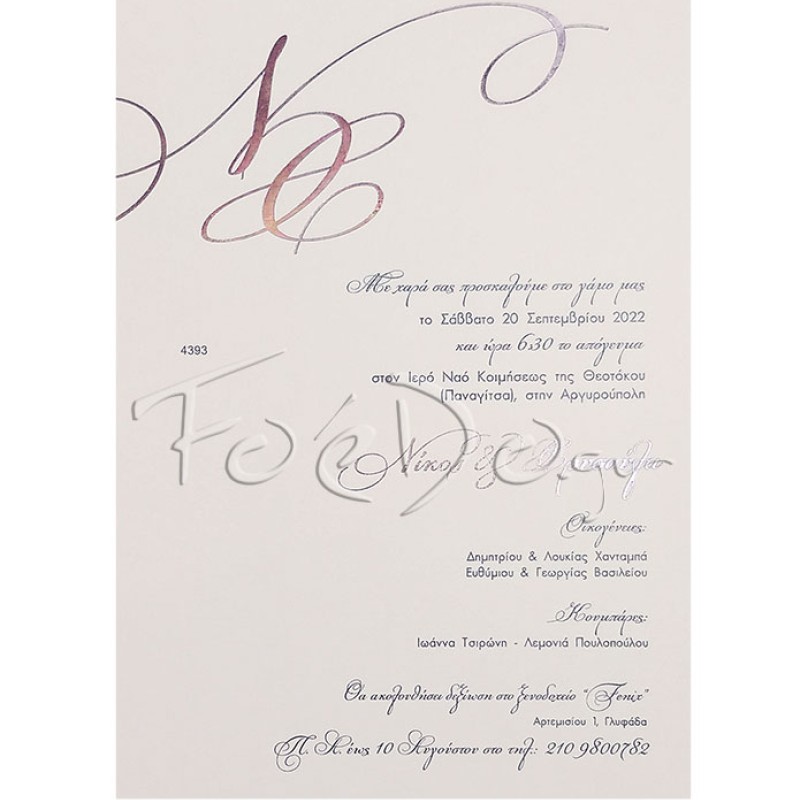 Με χαρά σας προσκαλούμε στο γάμο μας
το Σάββατο 20 Σεπτεμβρίου 2022
και ώρα 6:30 το απόγευμα
4393
στον Ιερό Ναό Κοιμήσεως της Θεοτόκου
(Παναγίτσα), στην Αργυρούπολη
Νίκος &
Οικογένειες:
Δημητρίου & Λουκίας Χανταμπά
Ευθύμιου & Γεωργίας Βασιλείου
Κουμπάρες:
Ιωάννα Τσιρώνη - Λεμονιά Πουλοπούλου
Θα ακολουθήσει δεξίωση στο ξενοδοχείο "Fenix"
Αρτεμισίου 1, Γλυφάδα
Π. Α. έως 10 Αυγούστου στο τηλ.: 210 9800782